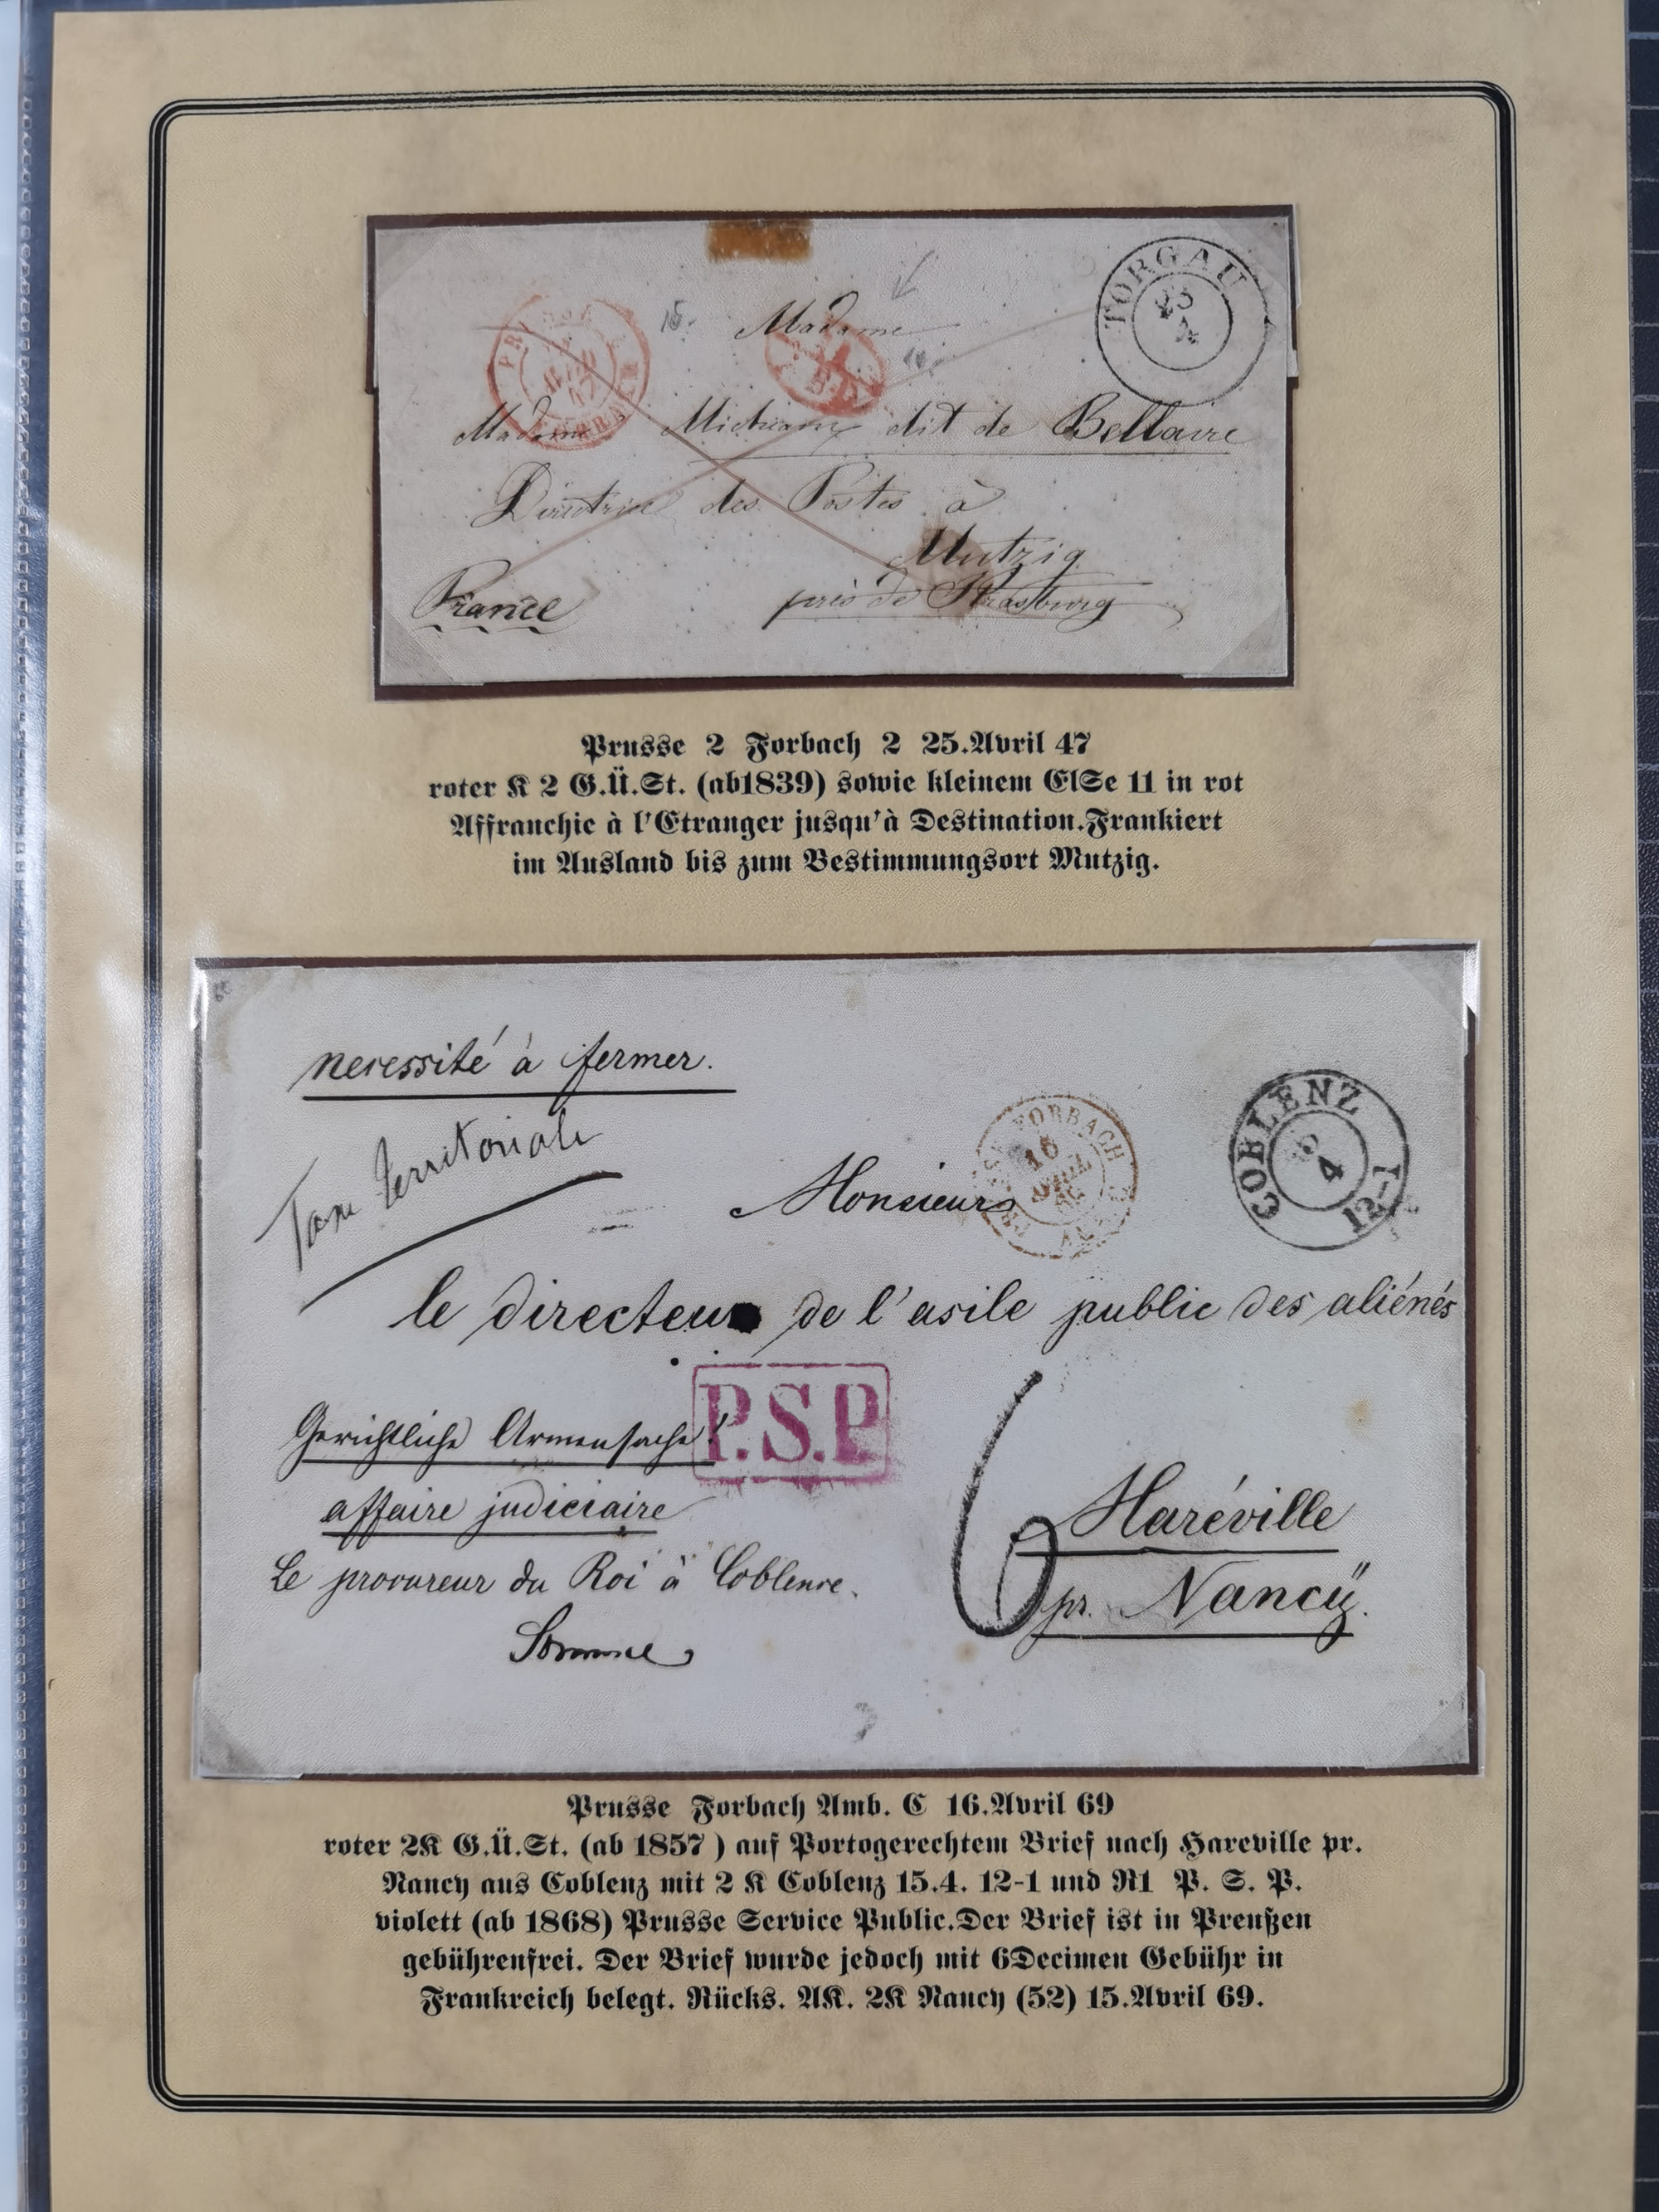 TORGAU
23
4
PRUSSE
FORBACH
Madame
Madame Michaux dit de Bellaire
Directrice des Postes à
Mutzig
France
près de Strasburg
Prusse 2 Forbach 2 25.Avril 47
roter K 2 G.Ü.St. (ab1839) sowie kleinem ElSe 11 in rot
Affranchie à l'Etranger jusqu'à Destination.Frankiert
im Ausland bis zum Bestimmungsort Mutzig.
necessité à fermer.
Taxe territoriale
FORBACH
16
AVRIL
COBLENZ
4
12-1
Monsieur
le directeur de l'asile public des aliénés
P.S.P
Gerichtliche Armensache!
affaire judiciaire
Le procureur du Roi à Coblence.
6
Haréville
pr. Nancÿ.
Prusse Forbach Amb. C 16.Avril 69
roter 2K G.Ü.St. (ab 1857 ) auf Portogerechtem Brief nach Hareville pr.
Nancy aus Coblenz mit 2 K Coblenz 15.4. 12-1 und R1 P. S. P.
violett (ab 1868) Prusse Service Public.Der Brief ist in Preußen
gebührenfrei. Der Brief wurde jedoch mit 6Decimen Gebühr in
Frankreich belegt. Rücks. AK. 2K Nancy (52) 15.Avril 69.